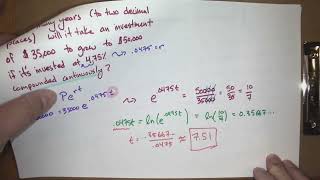 years (to two decimal
places) will it take an investment
of $35,000 to grow to $50,000
if it's invested at 4.75% ⤳ .0475=r
compounded continuously?
Pe^rt
000 = 35000 e^.0475t ⤳ e^.0475t = 50000/35000 = 50/35 = 10/7
.0475t = ln(e^.0475t) = ln(10/7) = 0.35667...
t = .35667.../.0475 ≈ 7.51